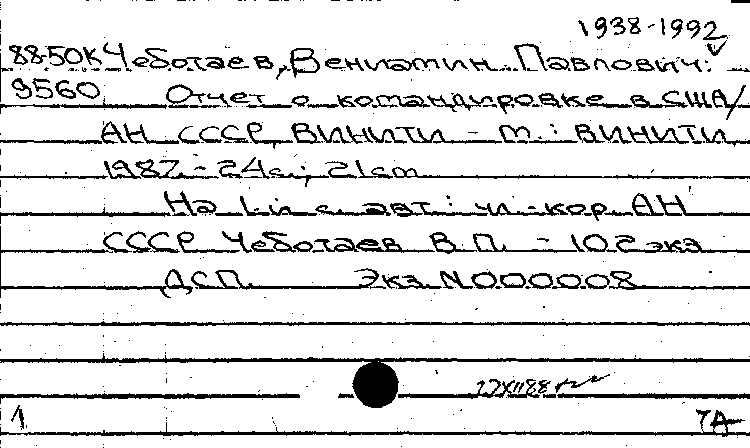 1938-1992
88-50К Чеботаев, Вениамин Павлович.
9560 Отчет о командировке в США/
АН СССР, ВИНИТИ - М.: ВИНИТИ,
1987. - 24с.; 21см
На 1-й с. авт.: чл.-кор. АН
СССР Чеботаев В.П. - 102 экз
ДСП. Экз. N000008
1 7А